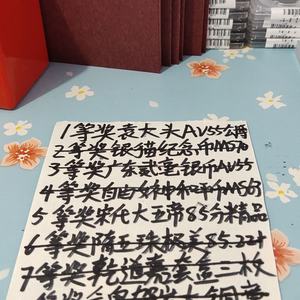 1等奖袁大头AU55分
2等奖银猫纪念币MS70
3等奖广东贰毫银币AU55
4等奖自由女神和平币MS63
5等奖宋代大五帝85分精品
6等奖隋五珠极美85.
7等奖乾道元宝 三枚
等奖